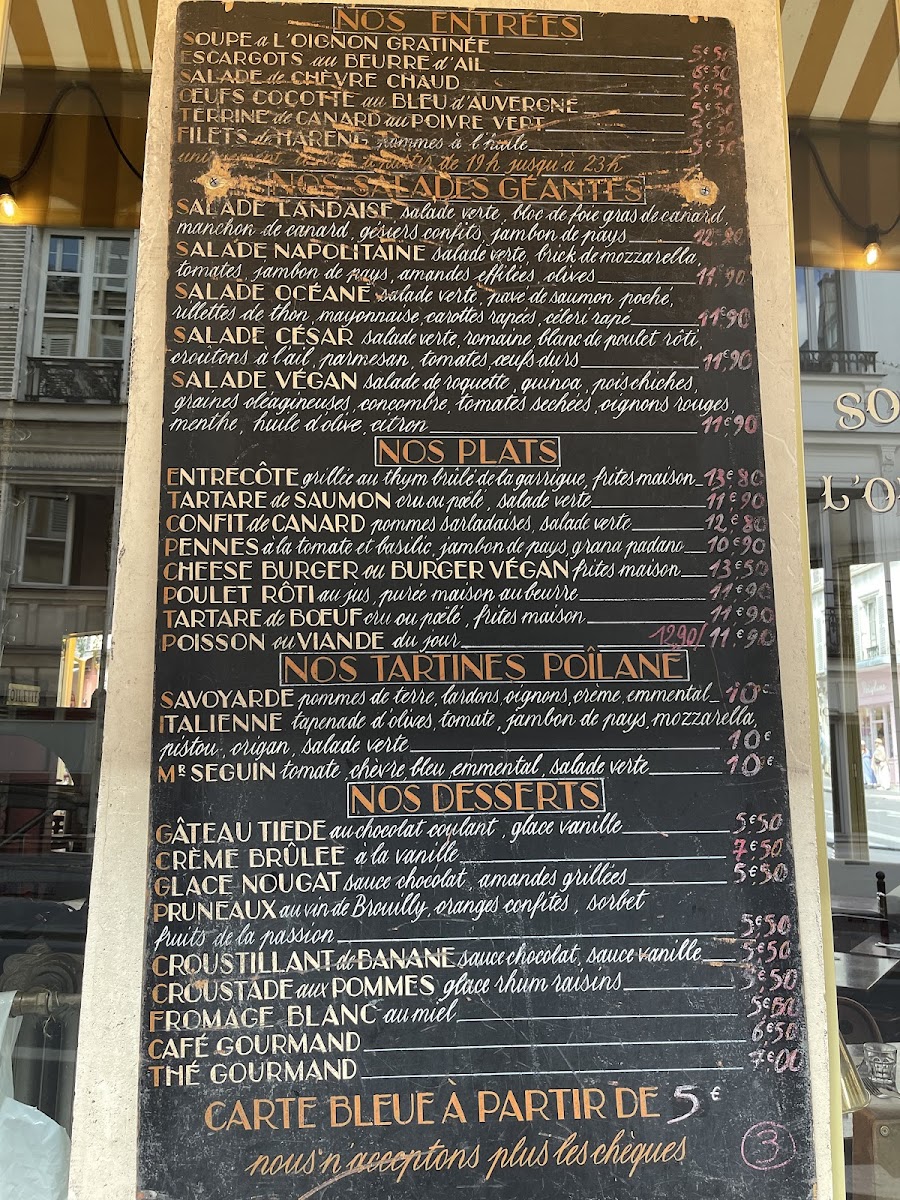 NOS ENTRÉES
SOUPE à L'OIGNON GRATINÉE 5€50
ESCARGOTS au BEURRE d'AIL 6€50
SALADE de CHÈVRE CHAUD 5€50
ŒUFS COCOTTE au BLEU d'AUVERGNE 5€50
TERRINE de CANARD au POIVRE VERT 5€50
FILETS de HARENG pommes à l'huile 5€50
uniquement de 19h jusqu'à 23h
NOS SALADES GÉANTES
SALADE LANDAISE salade verte, bloc de foie gras de canard,
manchon de canard, gésiers confits, jambon de pays 12€90
SALADE NAPOLITAINE salade verte, brick de mozzarella,
tomates, jambon de pays, amandes effilées, olives 11€90
SALADE OCÉANE salade verte, pavé de saumon poché,
rillettes de thon, mayonnaise, carottes rapées, céleri rapé 11€90
SALADE CÉSAR salade verte, romaine, blanc de poulet rôti,
croutons à l'ail, parmesan, tomates, œufs durs 11€90
SALADE VÉGAN salade de roquette, quinoa, pois chiches,
graines oléagineuses, concombre, tomates sechées, oignons rouges,
menthe, huile d'olive, citron 11€90
NOS PLATS
ENTRECÔTE grillée au thym brûlé de la garrigue, frites maison 13€80
TARTARE de SAUMON cru ou pœlé, salade verte 11€90
CONFIT de CANARD pommes sarladaises, salade verte 12€80
PENNES à la tomate et basilic, jambon de pays, grana padano 10€90
CHEESE BURGER ou BURGER VÉGAN frites maison 13€50
POULET RÔTI au jus, purée maison au beurre 11€90
TARTARE de BŒUF cru ou pœlé, frites maison 11€90
POISSON ou VIANDE du jour 1290/11€90
NOS TARTINES POÎLANE
SAVOYARDE pommes de terre, lardons, oignons, crème, emmental 10€
ITALIENNE tapenade d'olives, tomate, jambon de pays, mozzarella,
pistou, origan, salade verte 10€
MR SEGUIN tomate, chèvre, bleu, emmental, salade verte 10€
NOS DESSERTS
GÂTEAU TIEDE au chocolat coulant, glace vanille 5€50
CRÈME BRÛLEE à la vanille 7€50
GLACE NOUGAT sauce chocolat, amandes grillées 5€50
PRUNEAUX au vin de Brouilly, oranges confites, sorbet
fruits de la passion 5€50
CROUSTILLANT de BANANE sauce chocolat, sauce vanille 5€50
CROUSTADE aux POMMES glace rhum raisins 5€50
FROMAGE BLANC au miel 5€50
CAFÉ GOURMAND 6€50
THÉ GOURMAND 7€00
CARTE BLEUE À PARTIR DE 5€
nous n'acceptons plus les chèques
3
SO
L'O